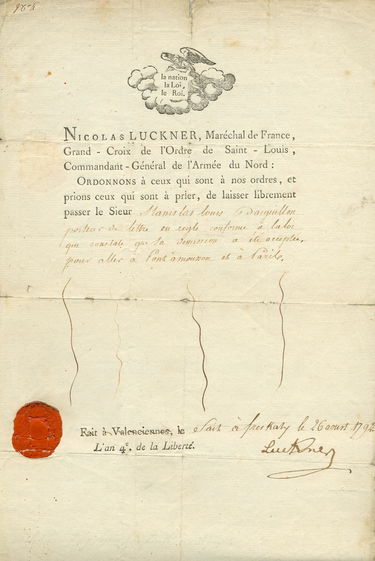 la nation
la Loi,
le Roi.
NICOLAS LUCKNER, Maréchal de France,
Grand - Croix de l'Ordre de Saint - Louis,
Commandant - Général de l'Armée du Nord :
ORDONNONS à ceux qui sont à nos ordres, et
prions ceux qui sont à prier, de laisser librement
passer le Sieur Stanislas Louis
porteur de lettre en regle conforme à la loi
qui constate que sa demission a été acceptée,
pour aller à Pont amousson et à Paris.
Fait à Valenciennes, le fait à le 26 aoust 1792
L'an 4e. de la Liberté.
Luckner